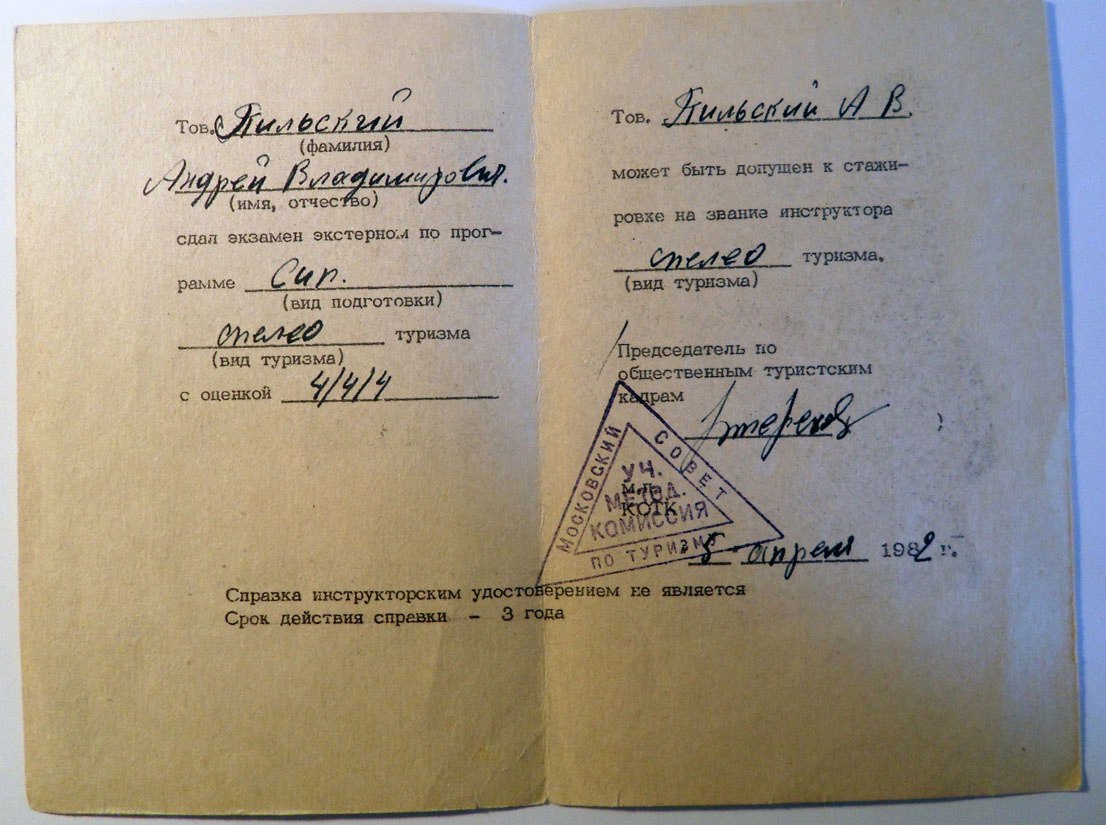 Тов. Пильский
(фамилия)
Андрей Владимирович.
(имя, отчество)
сдал экзамен экстерном по прог-
рамме Сип.
(вид подготовки)
спелео туризма
(вид туризма)
с оценкой 4/4/4
Тов. Пильский А В.
может быть допущен к стажи-
ровке на звание инструктора
спелео туризма.
(вид туризма)
Председатель по
общественным туристским
кадрам
МОСКОВСКИЙ СОВЕТ
ПО ТУРИЗМУ
УЧ.
МЕТОД.
КОМИССИЯ
м.п.
КОТК
5 апреля 1982 г.
Справка инструкторским удостоверением не является
Срок действия справки - 3 года